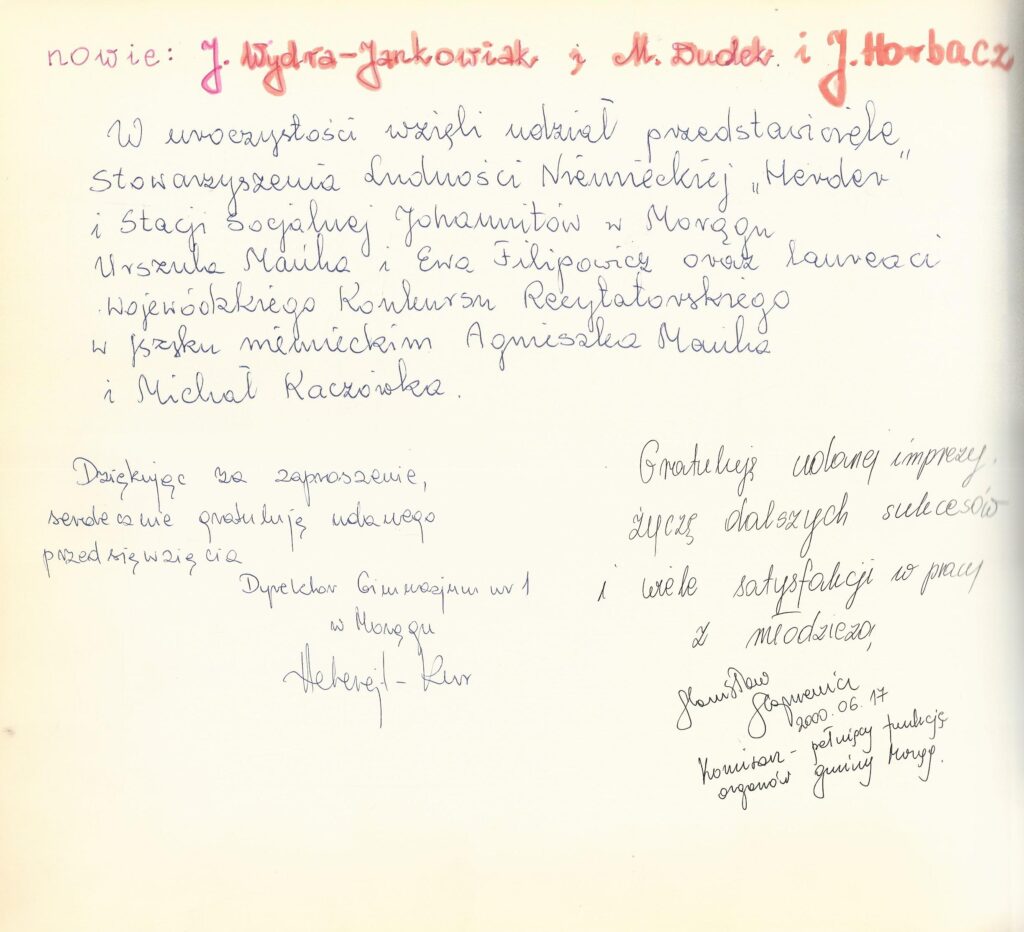 nowie: J. Wydra-Jankowiak i M. Dudek i J. Horbacz
W uroczystości wzięli udział przedstawiciele
Stowarzyszenia Ludności Niemieckiej „Herder”
i Stacji Socjalnej Johannitów w Morągu
Urszula Mańka i Ewa Filipowicz oraz laureaci
Wojewódzkiego Konkursu Recytatorskiego
w języku niemieckim Agnieszka Mańka
i Michał Kaczówka.
Dziękując za zaproszenie,
serdecznie gratuluję udanego
przedsięwzięcia
Dyrektor Gimnazjum nr 1
w Morągu
Gratuluję udanej imprezy.
życzę dalszych sukcesów
i wiele satysfakcji w pracy
z młodzieżą
Stanisław
2000.06.17
Komisarz - pełniący funkcję
organów gminy Morąg.